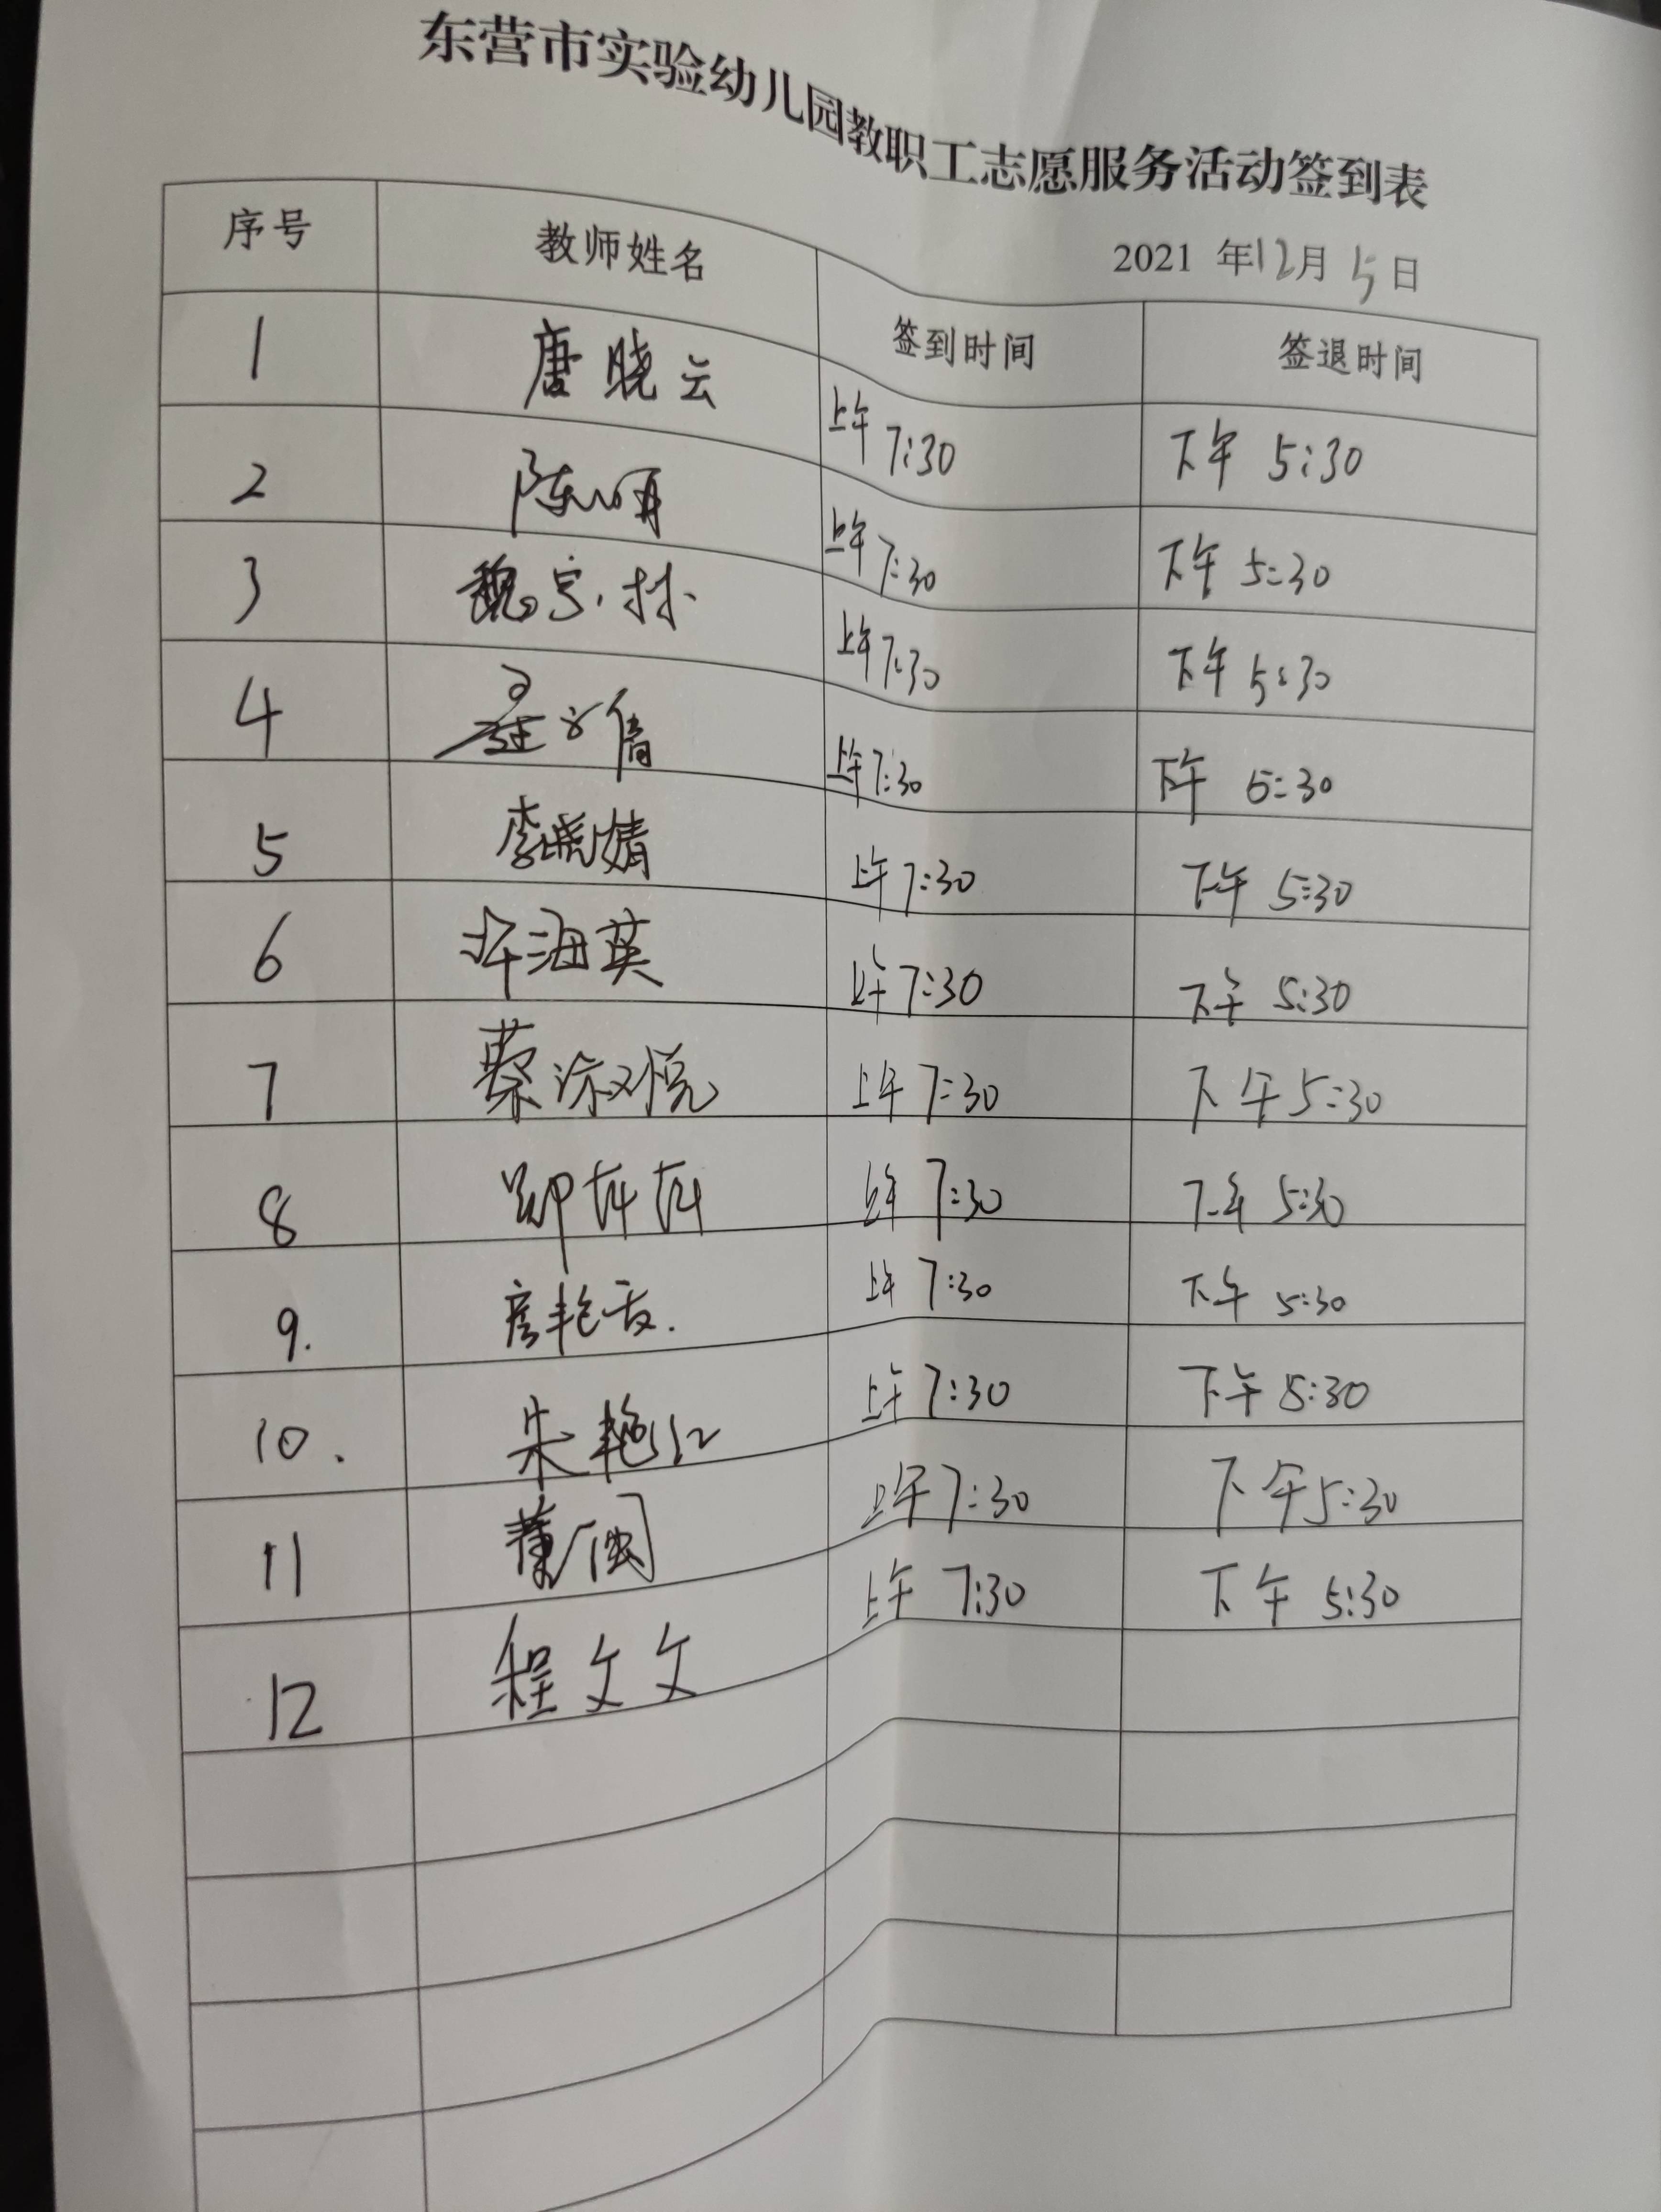 东营市实验幼儿园教职工志愿服务活动签到表
2021 年12月5日
序号 教师姓名 签到时间 签退时间
1 唐晓云 上午 7:30 下午 5:30
2 陈 上午 7:30 下午 5:30
3 魏 林 上午 7:30 下午 5:30
4 倩 上午 7:30 下午 5:30
5 李晓婧 上午 7:30 下午 5:30
6 许海英 上午 7:30 下午 5:30
7 蔡淑悦 上午 7:30 下午 5:30
8 郑 上午 7:30 下午 5:30
9. 艳 上午 7:30 下午 5:30
10. 朱艳红 上午 7:30 下午 5:30
11 董 上午 7:30 下午 5:30
12 程文文 上午 7:30 下午 5:30